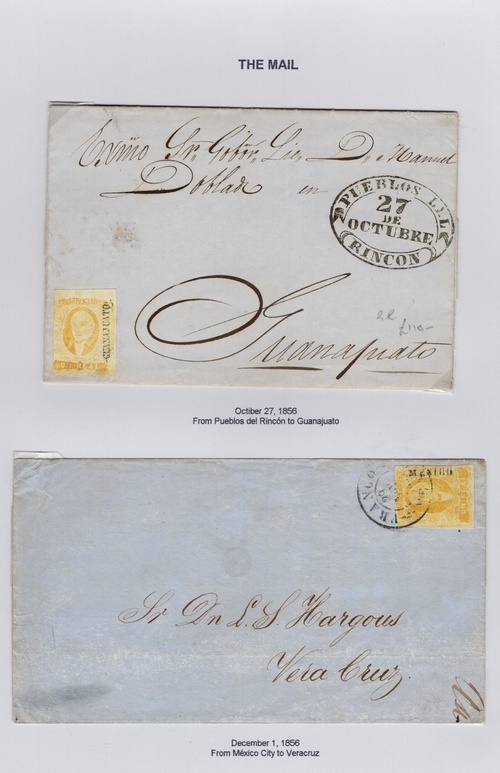 THE MAIL
Exmo Sr. Gobor. Lic. D. Manuel
Doblado en
PUEBLOS DEL
27
DE
OCTUBRE
RINCON
GUANAJUATO
£110-
Guanajuato
Octiber 27, 1856
From Pueblos del Rincón to Guanajuato
MEXICO
FRANCO
Sr Dn L. S Hargous
Vera Cruz.
December 1, 1856
From México City to Veracruz